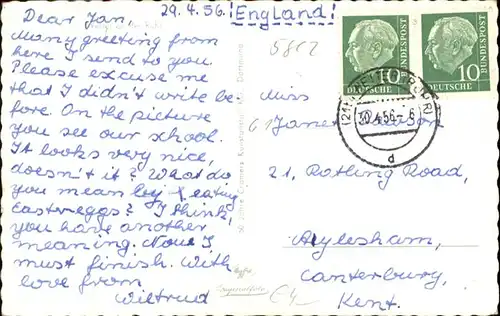 29.4.56. !England!
Dear Jan,
Many greeting from
here I send to you.
Please excuse me
that I didn't write be-
fore. On the picture
you see our school.
It looks very nice,
doesn't it? What do
you mean by eating
Eastereggs? I think,
you have another
meaning. Now I
must finish. With
love from
Wiltrud
5802
10
DEUTSCHE
BUNDESPOST
10
DEUTSCHE
BUNDESPOST
30.4.56.-6
d
Miss
Janet
21, Ratling Road,
Aylesham,
Canterbury,
Kent.